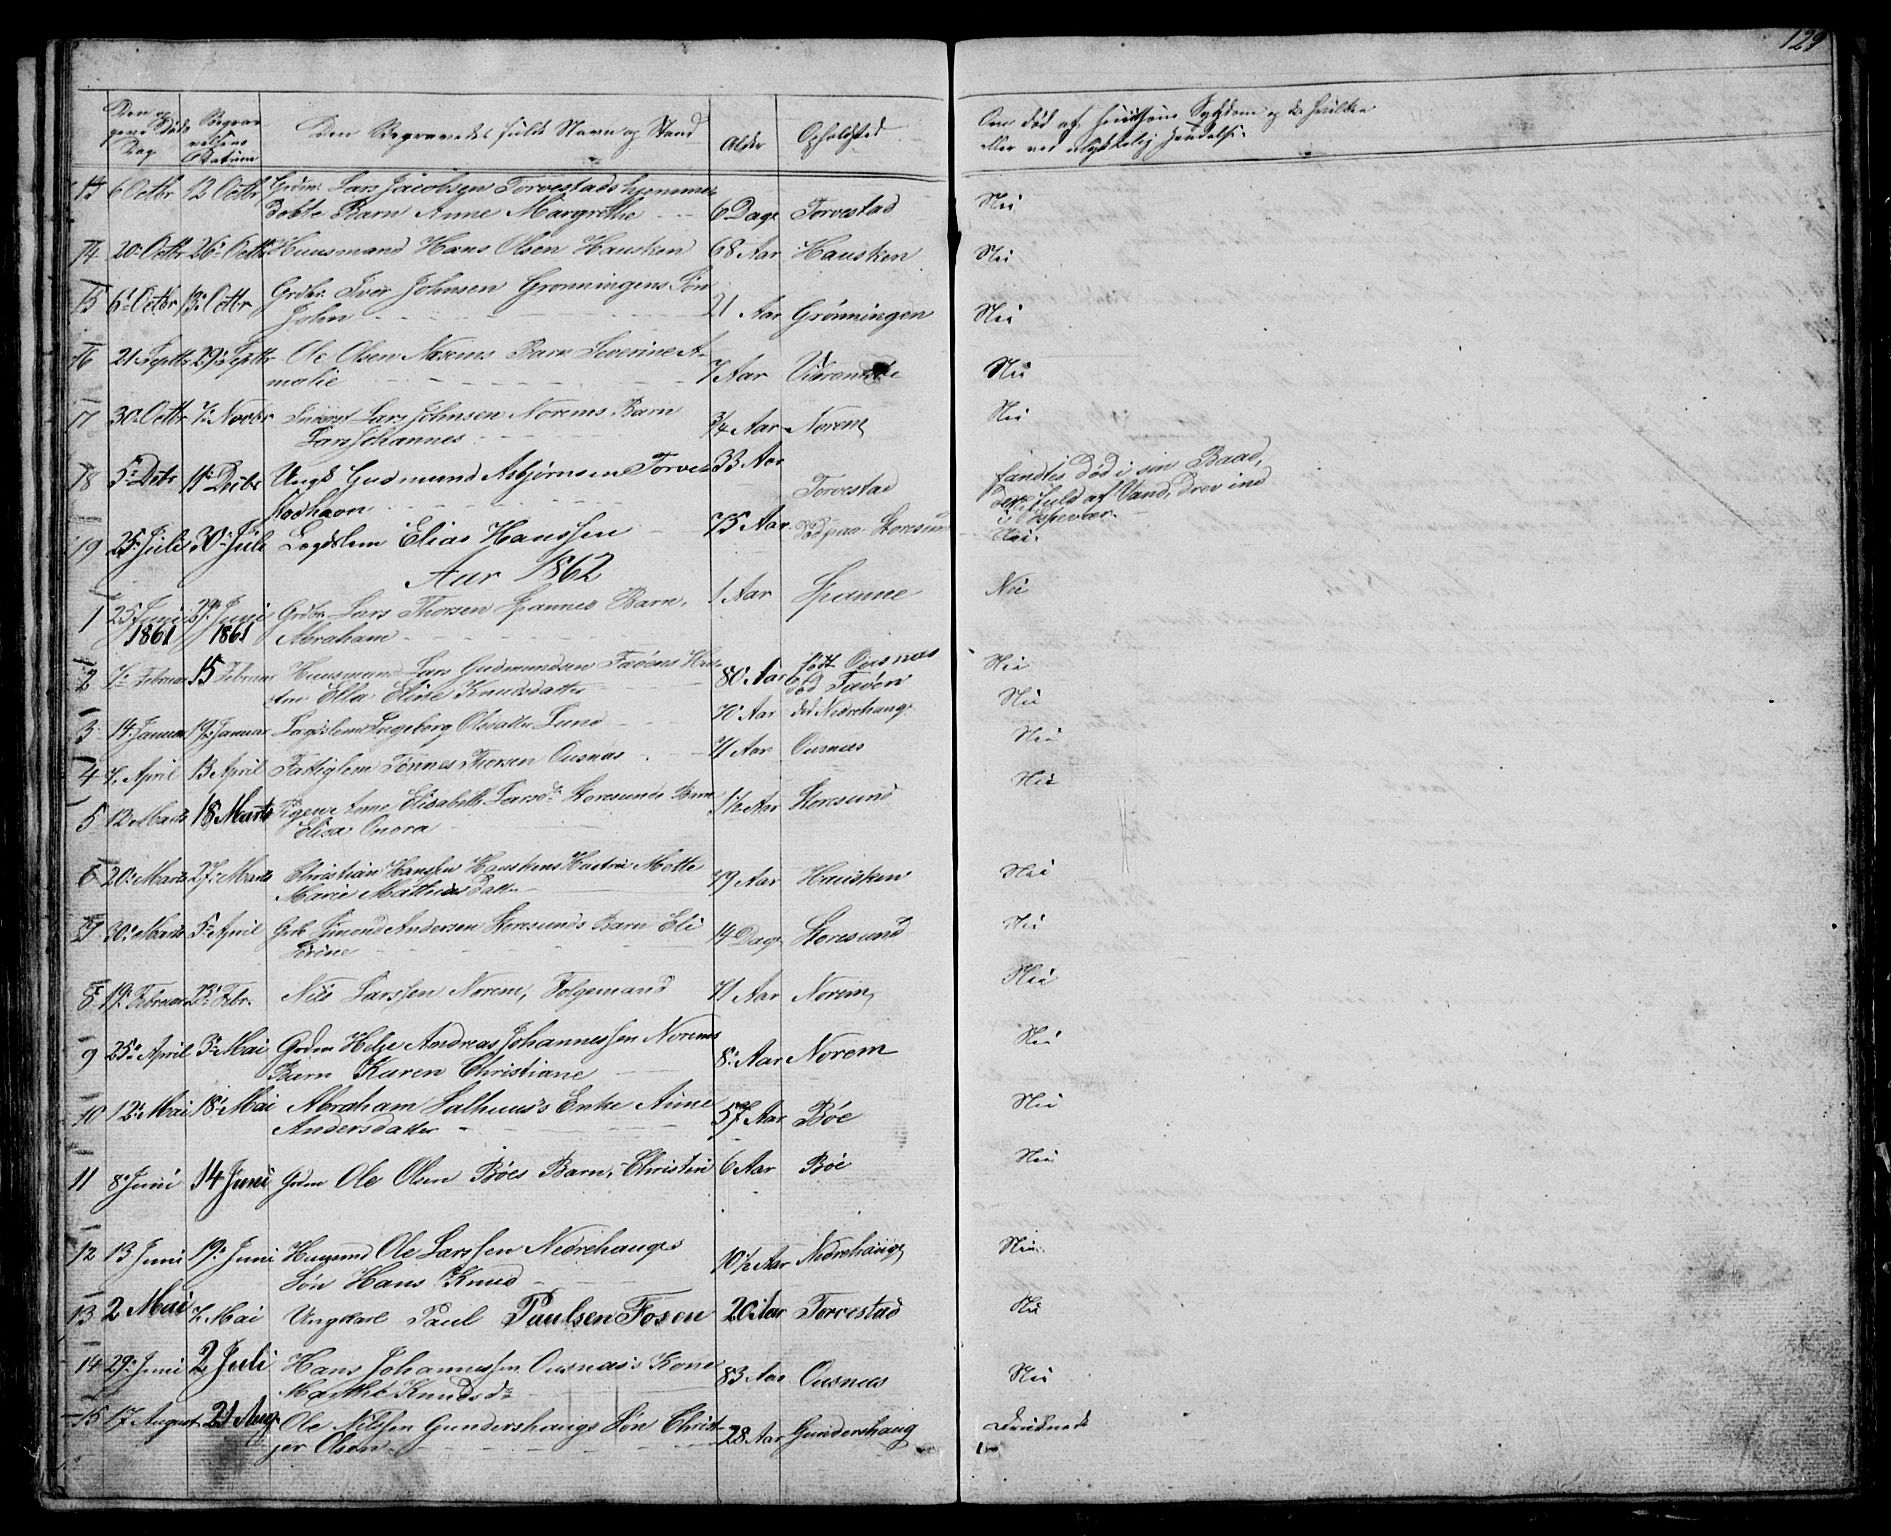 129
Den Begravedes fulde Navn og Stand Alder Opholdsted
13 6 Octbr 12 Octbr Grdm: Lars Jacobsen Torvestads hjemme-
døbte Barn Anne Margrethe 6 Dage Torvestad Nei
14 20 Octbr 26 Octbr Huusmand Hans Olsen Hausken 68 Aar Hausken Nei
15 6 Octbr 13 Octbr Grdbr: Iver Johnsen Grønningens Søn
John 21 Aar Grønningen Nei
16 21 Septbr 29 Septbr Ole Olsen Norems Barn Severine A-
malie 7 Aar Nei
17 30 Octbr 7 Novbr Inderst Lars Johnsen Norems Barn
Lars Johannes 3/4 Aar Norem Nei
18 5 Debr 11 Decbr Ungk Gudmund Asbjørnsen Torve- 33 Aar
stadhavn Torvestad fandtes død i sin Baad,
fuld af Vand, drev ind
i Espevær
19 25 Juli 30 Juli Lægdslem Elias Hanssen 75 Aar Storesund Nei
Aar 1862
1 25 Juni 29 Juni Grdbr Lars Thorsen Spannes Barn 1 Aar Spanne Nei
1861 1861 Abraham
2 7 Februar 15 Februar Huusmand Lars Gudmundsen Fæøens Hu-
stru Ella Eline Knudsdatter 80 Aar født Ousnæs
død Fæøen Nei
3 14 Januar 19 Januar Lægdslem Ingeborg Olsdatter Lund 70 Aar Nedrehaug Nei
4 7 April 13 April Fattiglem Tønnes Thorsen Ousnæs 71 Aar Ousnæs Nei
5 12 Marts 18 Marts Pigen Anne Elisabeth Larsd: Storesunds Barn
Elisa Onora 1 1/2 Aar Storesund Nei
6 20 Marts 27 Marts Christian Hansen Hauskens Hustru Mette
Marie Mathiasdatter 79 Aar Hausken Nei
7 30 Marts 5 April Grb Simond Andersen Storesunds Barn Eli
Serine 14 Dage Storesund Nei
8 19 Februar 25 Febr. Nils Larssen Norem, Følgemand 71 Aar Norem Nei
9 25 April 3 Mai Grdm Helge Andreas Johannessen Norems
Barn Karen Christiane 8 Aar Norem Nei
10 12 Mai 18 Mai Abraham Salhuus's Enke Anne
Andersdatter 57 Aar Bøe Nei
11 8 Juni 14 Juni Grdm Ole Olsen Bøes Barn, Christen 6 Aar Bøe Nei
12 13 Juni 19 Juni Huusmd Ole Larssen Nedrehaugs
Søn Hans Knud 10 1/2 Aar Nedrehaug Nei
13 2 Mai 7 Mai Ungkarl Paul Paulsen Fosen 20 Aar Torvestad Nei
14 29 Juni 2 Juli Hans Johannessen Ousnæs's Kone
Marthe Knudsd: 83 Aar Ousnæs Nei
15 17 August 21 Aug Ole Nilssen Gundershaugs Søn Christ-
jer Olsen 28 Aar Gundershaug Druknede